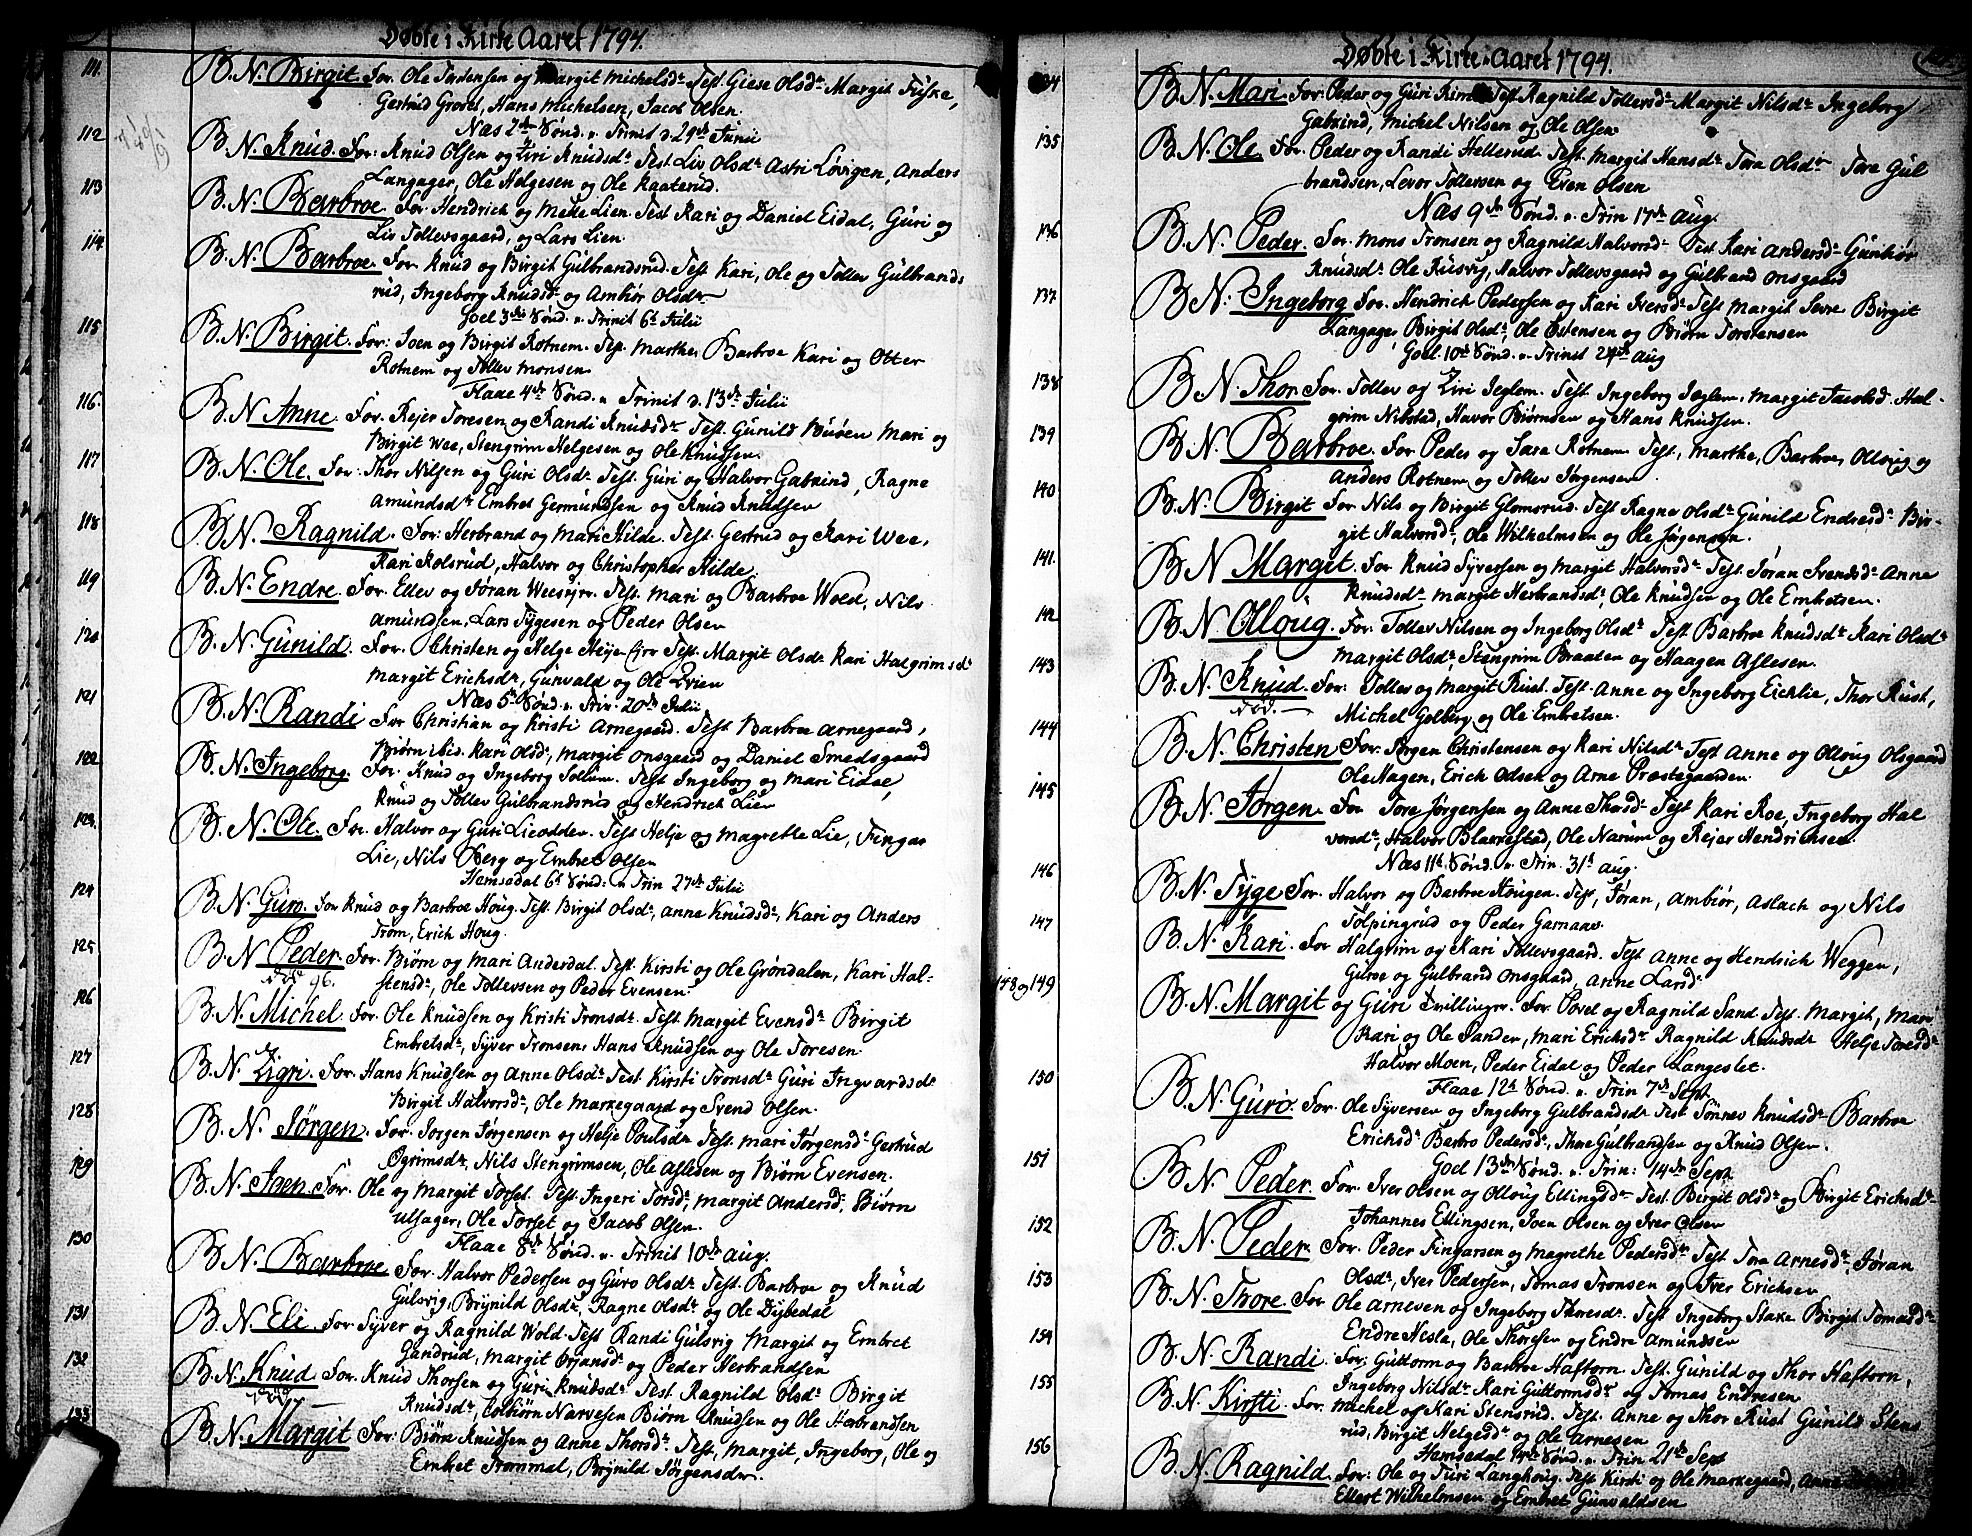 Døbte i Kirke Aaret 1794.
111. B. N. Birgit For. Ole Tordensen og Margit Michelsdr. Test. Giese Olsdr. Margit Fiske,
Gertrud Grovet, Hans Michelsen, Jacob Olsen.
Næs 2den Sønd. v. Trinit d. 29de Junii
112 B. N. Knud. For: Knud Olsen og Ziri Knudsdr. Test. Liv Olsdr. Astri Løvigen, Anders
Langager, Ole Helgesen og Ole Kaaterud.
113 B. N. Barbroe For. Hendrich og Mette Lien. Test. Kari og Daniel Eidal, Guri og
Liv Tollevsgaard, og Lars Lien.
114 B. N. Barbroe. For. Knud og Birgit Gulbrandsrud. Test. Kari, Ole og Tollev Gulbrands
rud, Ingeborg Knudsdr. og Ambiør Olsdr.
Goel 3die Sønd. v. Trinit 6te Julii
115 B. N. Birgit. For: Joen og Birgit Rotnem. Test. Marthe, Barbroe Kari og Otter
Rotnem og Tollev Monsen
Flaae 4de Sønd. v. Trinit d. 13de Julii
116. B. N. Anne. For. Rejer Toresen og Randi Knudsdr. Test. Gunild Buøen Mari og
Birgit Wee, Stengrim Helgesen og Ole Knudsen.
117 B. N. Ole. For: Thor Nilsen og Guri Olsdr. Test. Guri og Halvor Gabkind, Ragne
Amundsdr. Embret Germundsen og Knud Knudsen
118 B. N. Ragnild. For: Herbrand og Mari Hilde. Test. Gertrud og Kari Wee,
Kari Rolsrud, Halvor og Christopher Hilde.
119 B. N. Endre. For. Ellev og Jøran Weesejer. Test. Mari og Barbroe Wold, Nils
Amundsen, Lars Tygesen og Peder Olsen
120 B. N. Gunild. For. Christen og Helge Test. Margit Olsdr. Kari Halgrimsdr.
Margit Erichsdr, Gunvald og Ole
Næs 5te Sønd. v. Trin. 20de Julii
121 B. N. Randi For Christian og Kristi Arnegaard. Test. Barbroe Arnegaard,
Biørn ibid. Kari Olsdr, Margit Onsgaard og Daniel Smedsgaard
122 B. N. Ingeborg. For. Knud og Ingeborg Tollum. Test Ingeborg og Mari Eidal,
Knud og Tollev Gulbrandsrud og Hendrich Lien
123. B. N. Ole. For. Halvor og Guri Lieodden. Test Helje og Magrethe Lie, Fingar
Lie, Nils Berg og Embret Olsen
Hemsedal 6te Sønd: v. Trin 27de Julii
124 B. N. Guro. For Knud og Barbroe Houg. Test. Birgit Olsdr, Anne Knudsdr, Kari og Anders
Trøm, Erich Houg.
125 B. N. Peder. For. Biørn og Mari Anderdal. Test. Kirsti og Ole Grøndalen, Kari Hal-
død 96. stensdr, Ole Tollevsen og Peder Evensen.
126 B. N. Michel For. Ole Knudsen og Kristi Tronsdr. Test. Margit Evensdr. Birgit
Embretsdr, Syver Tronsen, Hans Knudsen og Ole Toresen
127 B. N. Zigri. For. Hans Knudsen og Anne Olsdr. Test. Kirsti Tronsdr. Guri Ingvardsdr.
Birgit Halvorsdr, Ole Markegaard og Svend Olsen.
128 B. N. Jørgen. For. Jørgen Jørgensen og Helje Poulsdr. Test. Mari Jørgensdr Gertrud
Ogrimsdr, Nils Stengrimsen, Ole Aslesen og Biørn Evensen.
129 B. N. Joen. For. Ole og Margit Torset. Test. Ingeri Torsdr, Margit Andersdr. Biørn
Ulsager, Ole Torset og Jacob Olsen.
Flaae 8de Sønd. v. Trinit 10de Aug.
130 B. N. Barbroe For. Halvor Pedersen og Guro Olsdr. Test. Barbroe og Knud
Gulsvig, Brynild Olsdr, Ragne Olsdr. og Ole Dybedal
131 B. N. Eli. For. Syver og Ragnild Wold. Test. Randi Gulsvig Margit og Embret
Gandrud, Margit Ørjansdr. og Peder Herbrandsen
132 B. N. Knud For. Knud Thorsen og Guri Knudsdr. Test. Ragnild Olsdr. Birgit
død Knudsdr, Colbiørn Narvesen Biørn Knudsen og Ole Herbrandsen
133 B. N. Margit For: Biørn Knudsen og Anne Thorsdr. Test. Margit, Ingeborg, Ole og
Embret Trommal, Brynild Jørgensdr.
Døbte i Kirke-Aaret 1794.
134 B. N. Mari For. Peder og Guri Test Ragnild Tollevsdr. Margit Nilsdr. Ingeborg
Gabkind, Michel Nilsen og Ole Olsen
135 B. N. Ole. For. Peder og Randi Hellerud. Test. Margit Hansdr. Tora Olsdr. Tore Gul
brandsen, Levor Tollevsen og Even Olsen
Næs 9de Sønd. v. Trin 17de Aug.
136 B. N. Peder. For. Mons Tronsen og Ragnild Halvorsdr. Test. Kari Andersdr. Gunhør
Knudsdr. Ole Rusvig, Halvor Tollevsgaard og Gulbrand Onsgaard
137 B. N. Ingeborg For. Hendrich Pedersen og Kari Iversdr. Test Margit Sevre Birgit
Langage, Birgit Olsdr, Ole Estensen og Biørn Torstensen
Goel 10de Sønd. v. Trinit 24de Aug
138 B. N. Thor For. Tollev og Ziri Jeglem. Test. Ingeborg Jeglem, Margit Jacobsd. Hal-
grim Nibstad, Halvor Biørnsen og Hans Knudsen.
139 B. N. Barbroe. For Peder og Sara Rotnem Test, Marthe, Barbroe, Olloug og
Anders Rotnem og Tollev Jørgensen
140 B. N. Birgit For Nils og Birgit Glomsrud. Test Ragne Olsdr. Gunild Endresdr. Bir-
git Halvorsdr, Ole Wilhelmsen og Ole Jørgensen.
141. B. N. Margit. For Knud Syversen og Margit Halvorsdr. Test. Jøran Svendsdr. Anne
Knudsdr. Margit Herbrandsdr, Ole Knudsen og Ole Embretsen.
142 B. N. Olloug. For. Tollev Nilsen og Ingeborg Olsdr. Test Barbroe Knudsdr. Kari Olsdr
Margit Olsdr, Stengrim Braaten og Haagen Aslesen.
143 B. N. Knud. For: Tollev og Margit Rust. Test. Anne og Ingeborg Eichlie, Thor Rust,
død. Michel Golberg og Ole Embretsen.
144 B. N. Christen For. Jørgen Christensen og Kari Nilsdr. Test Anne og Olloug Olsgaard
Ole Hagen, Erich Olsen og Arne Præstegaarden.
145 B. N. Jørgen. For Tore Jørgensen og Anne Thorsdr. Test Kari Roe, Ingeborg Hal
vorsdr, Halvor Blakkestad, Ole Narum og Rejer Hendrichsen.
Næs 11te Sønd. v. Trin. 31te Aug.
146 B. N. Tyge For. Halvor og Barbroe Hougen. Test, Jøran, Ambiør, Aslach og Nils
Tolpingrud og Peder Garnaas
147 B. N. Kari. For Halgrim og Kari Tollevsgaard. Test Anne og Hendrich Weggen,
Gunne og Gulbrand Onsgaard, Anne Larsdr.
148 og 149 B. N. Margit og Guri Tvillinger. For. Povel og Ragnild Sand. Test. Margit, Mari
Kari og Ole Sander, Mari Erichsdr. Ragnild Knudsdr. Helje Toresdr.
Halvor Moen, Peder Eidal og Peder Langeslet.
Flaae 12te Sønd. v. Trin 7de Sept.
150 B. N. Guro. For. Ole Syversen og Ingeborg Gulbrandsdr. Test. Sønnev Knudsdr. Barbroe
Erichsdr. Barbro Pedersdr, Thore Gulbrandsen og Knud Olsen.
Goel 13de Sønd. v. Trin: 14de Sept.
151 B. N. Peder. For. Iver Olsen og Olloug Ellingsdr. Test. Birgit Olsdr. og Birgit Erichsdr.
Johannes Ellingsen, Joen Olsen og Iver Olsen
152 B. N. Peder. For. Peder Fingarsen og Magrethe Pedersdr. Test Tora Arnesdr, Jøran
Olsdr, Iver Pedersen, Tomas Tronsen og Iver Erichsen
153 B. N. Thore. For Ole Arnesen og Ingeborg Thoresdr. Test Ingeborg Stake Birgit Tomasdr.
Endre Nesla, Ole Thoresen og Endre Amundsen
154 B. N. Randi. For: Guttorm og Barbroe Haftorn. Test. Gunild og Thor Haftorn,
Ingeborg Nilsdr. Kari Guttormsdr og Tomas Endresen
155 B. N. Kirsti For. Michel og Kari Stensrud. Test. Anne og Thor Rust Gunild Stens
rud, Birgit Helgesdr. og Ole Arnesen
Hemsedal 14de Sønd. v. Trin 21de Sept
156 B. N. Ragnild. For: Ole og Turi Langhoug. Test Kirsti og Ole Markegaard, Anne
Ellert Wilhelmsen og Embret Gunvaldsen